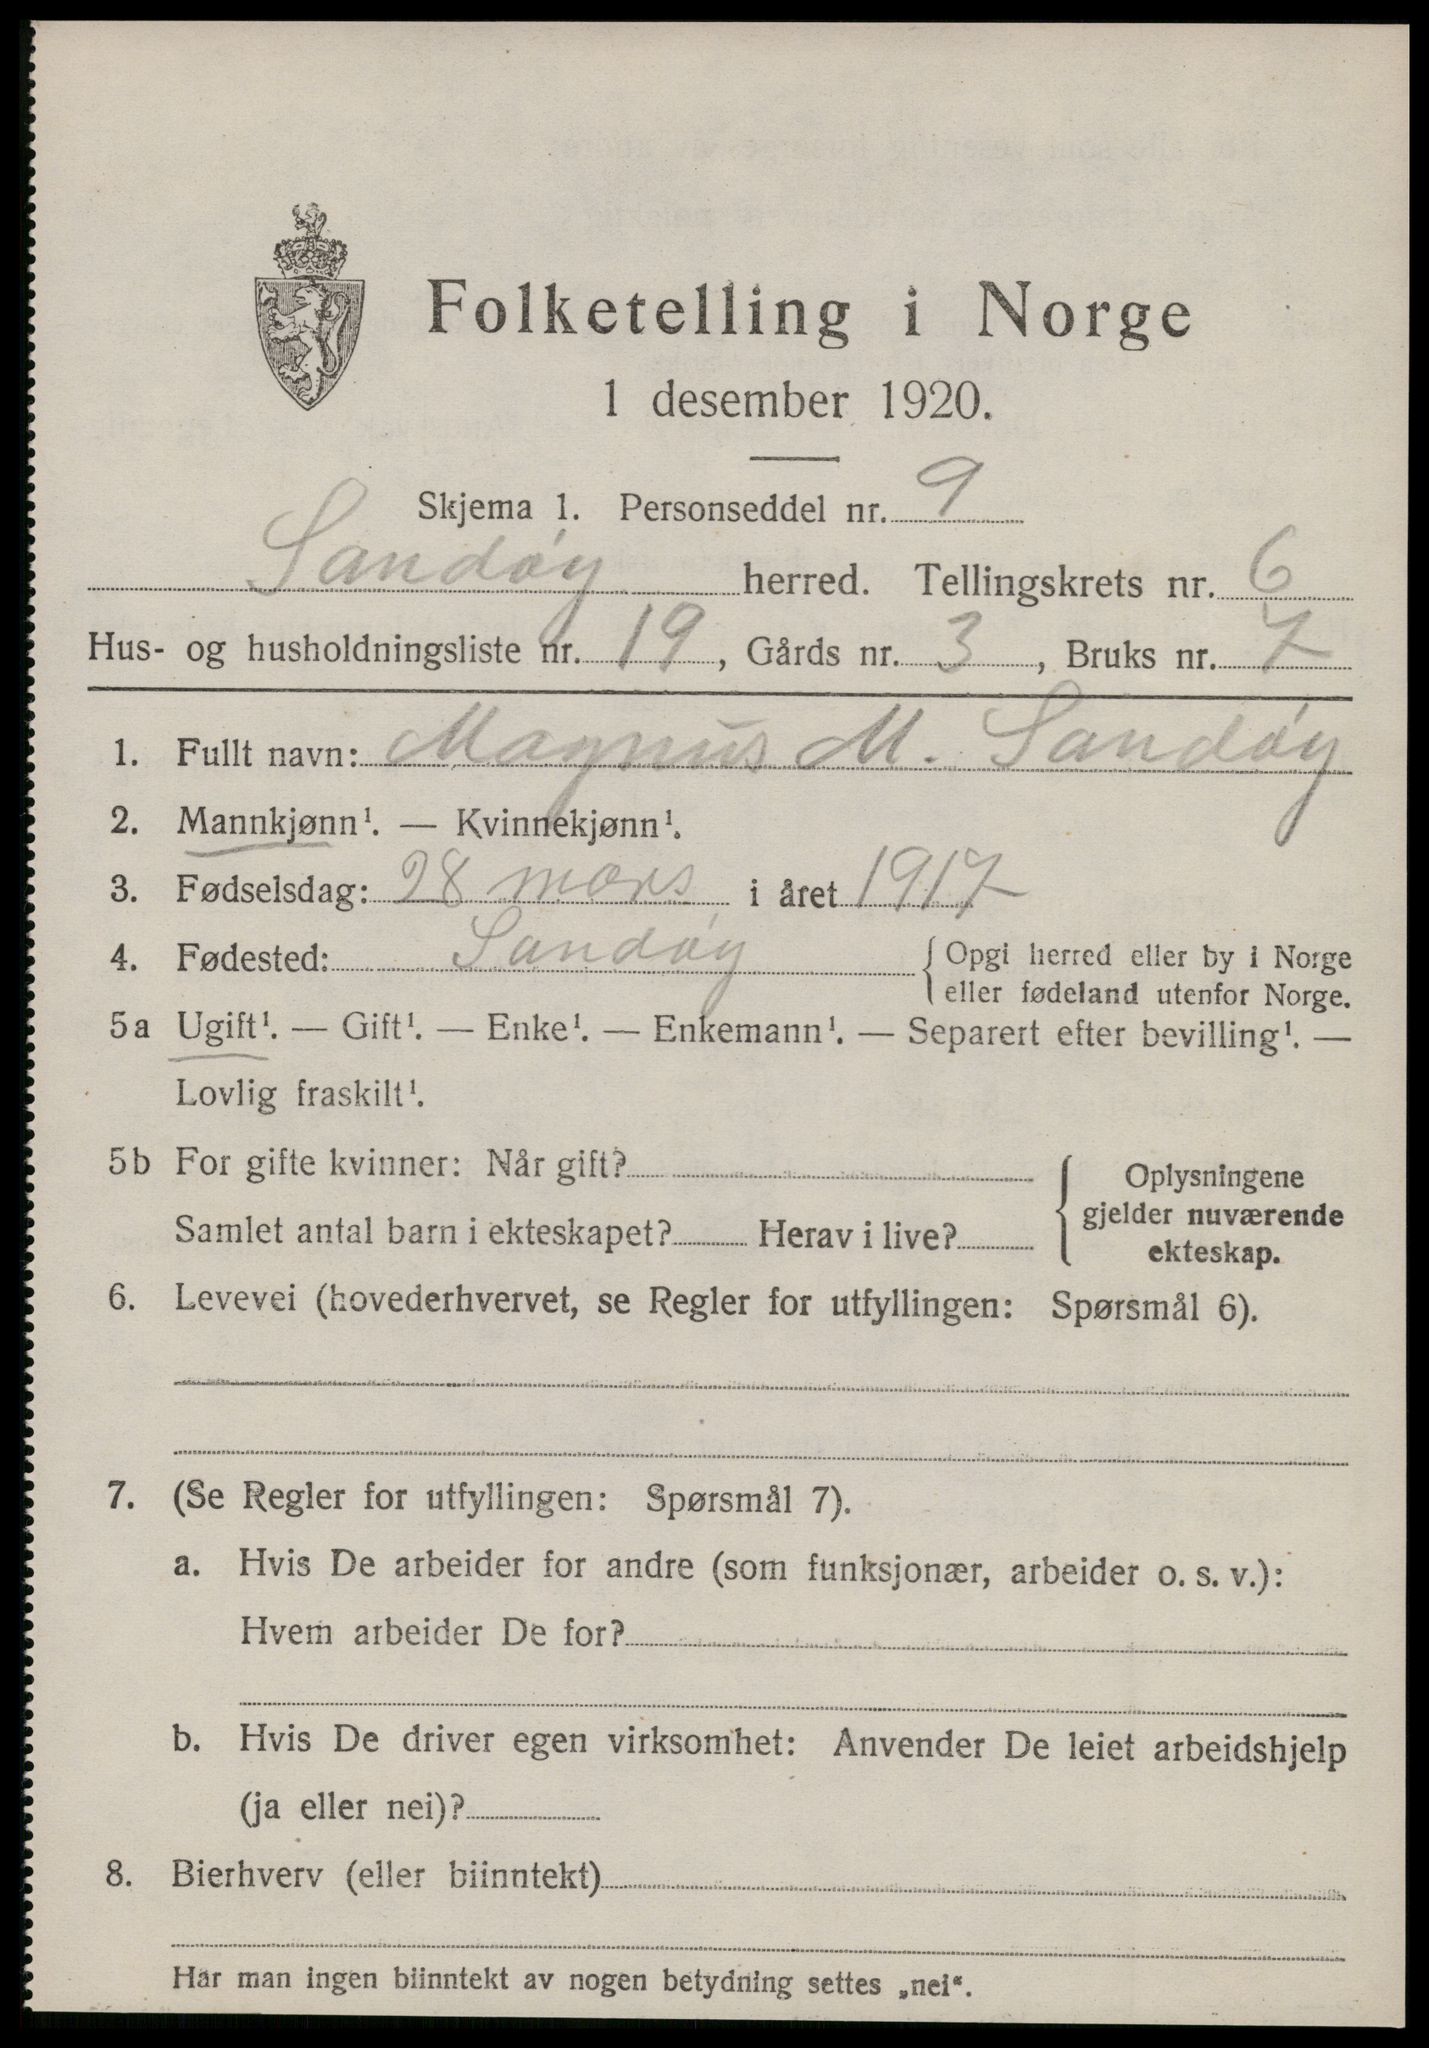 Folketelling i Norge
1 desember 1920.
Skjema 1. Personseddel nr. 9
Sandøy herred. Tellingskrets nr. 6
Hus- og husholdningsliste nr. 19, Gårds nr. 3, Bruks nr. 7
1. Fullt navn: Magnus M. Sandøy
2. Mannkjønn¹. — Kvinnekjønn¹.
3. Fødselsdag: 28 mars i året 1917
4. Fødested: Sandøy { Opgi herred eller by i Norge
eller fødeland utenfor Norge.
5a Ugift¹. — Gift¹. — Enke¹. — Enkemann¹. — Separert efter bevilling¹. —
Lovlig fraskilt¹.
5b For gifte kvinner: Når gift?
Samlet antal barn i ekteskapet? Herav i live?
{ Oplysningene
gjelder nuværende
ekteskap.
6. Levevei (hovederhvervet, se Regler for utfyllingen: Spørsmål 6).
7. (Se Regler for utfyllingen: Spørsmål 7).
a. Hvis De arbeider for andre (som funksjonær, arbeider o. s. v.):
Hvem arbeider De for?
b. Hvis De driver egen virksomhet: Anvender De leiet arbeidshjelp
(ja eller nei)?
8. Bierhverv (eller biinntekt)
Har man ingen biinntekt av nogen betydning settes „nei“.